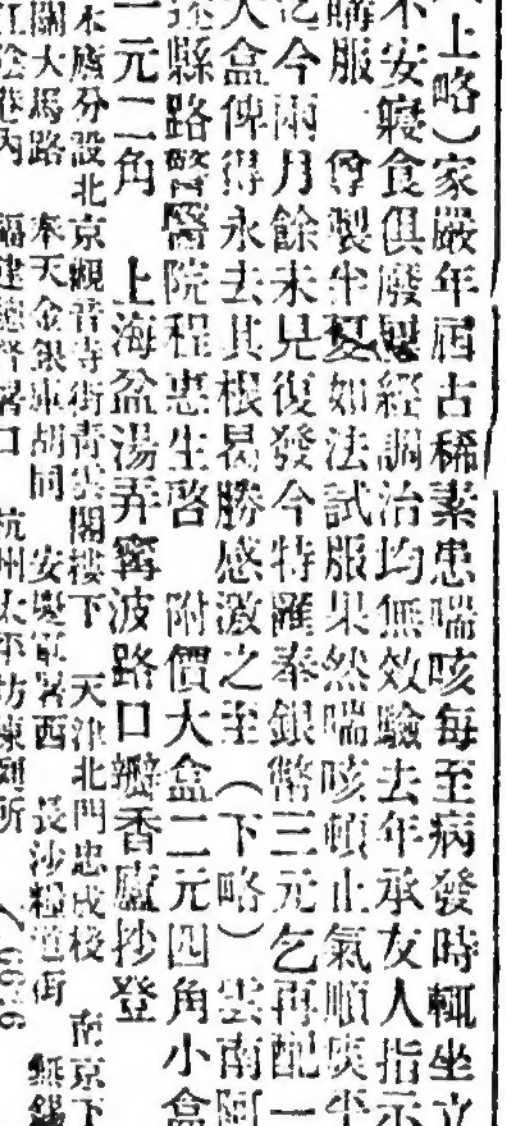 上略）家嚴年屆古稀素患喘咳每至病發時輒坐立
不安寢食俱廢屢經調治均無效驗去年承友人指示
購服　尊製半夏如法試服果然喘咳頓止氣順痰平
迄今兩月餘未見復發今特羅奉銀幣三元乞再配一
大盒俾得永去其根曷勝感激之至（下略）雲南阿
迷縣路警醫院程惠生啓　附價大盒二元四角小盒
一元二角　上海盆湯弄寗波路口瓣香廬抄登
本廬分設北京觀音寺街青雲閣樓下　天津北門忠成棧　南京下
關大馬路　奉天金銀庫胡同　安 署西　長沙糧道街　無錫
江陰巷內　福建 督署口　杭州太平坊陳列所